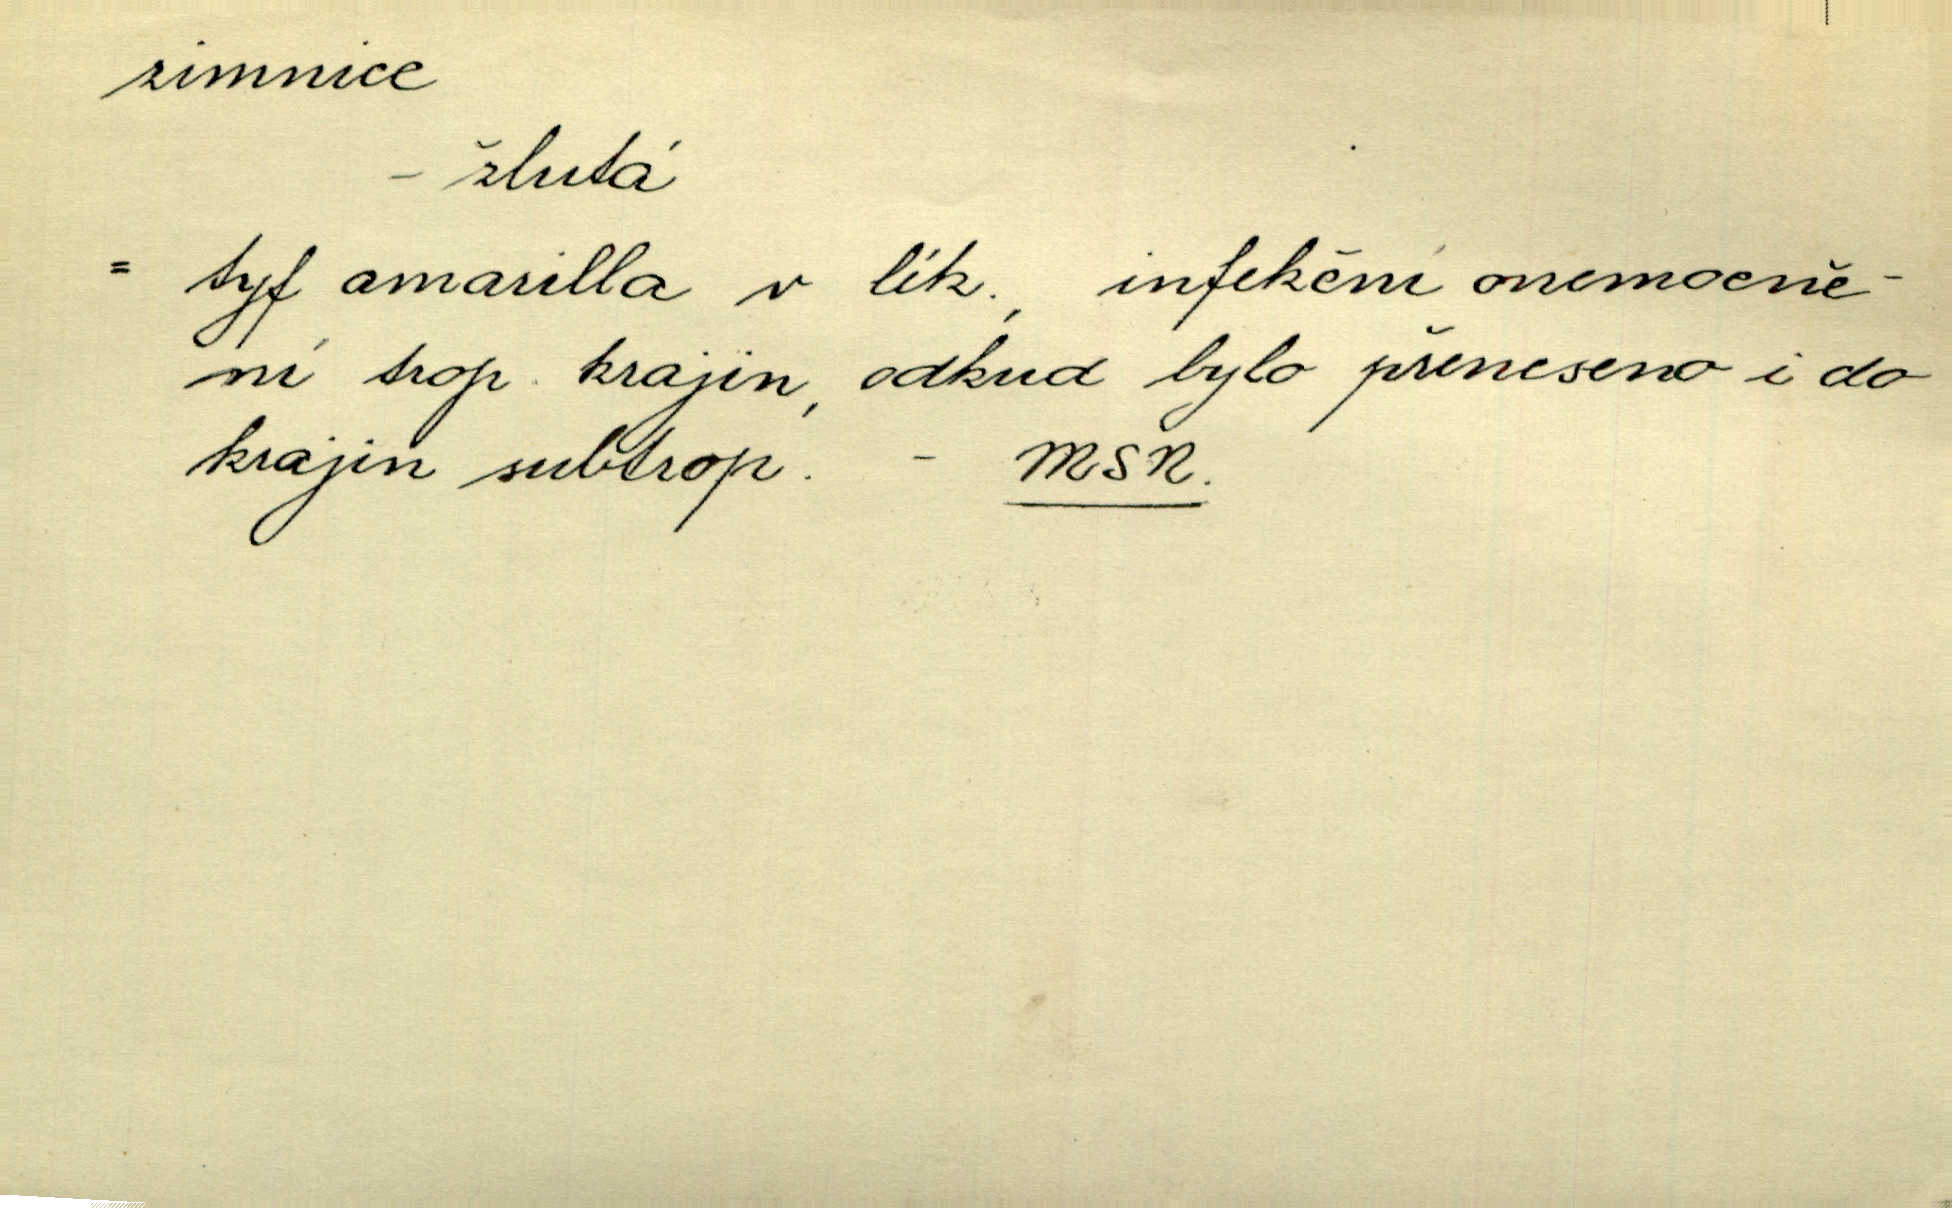 zimnice
- žlutá
= tyf amarilla v lék., infekční onemocně-
ní trop. krajin, odkud bylo přeneseno i do
krajin subtrop. - MSN.